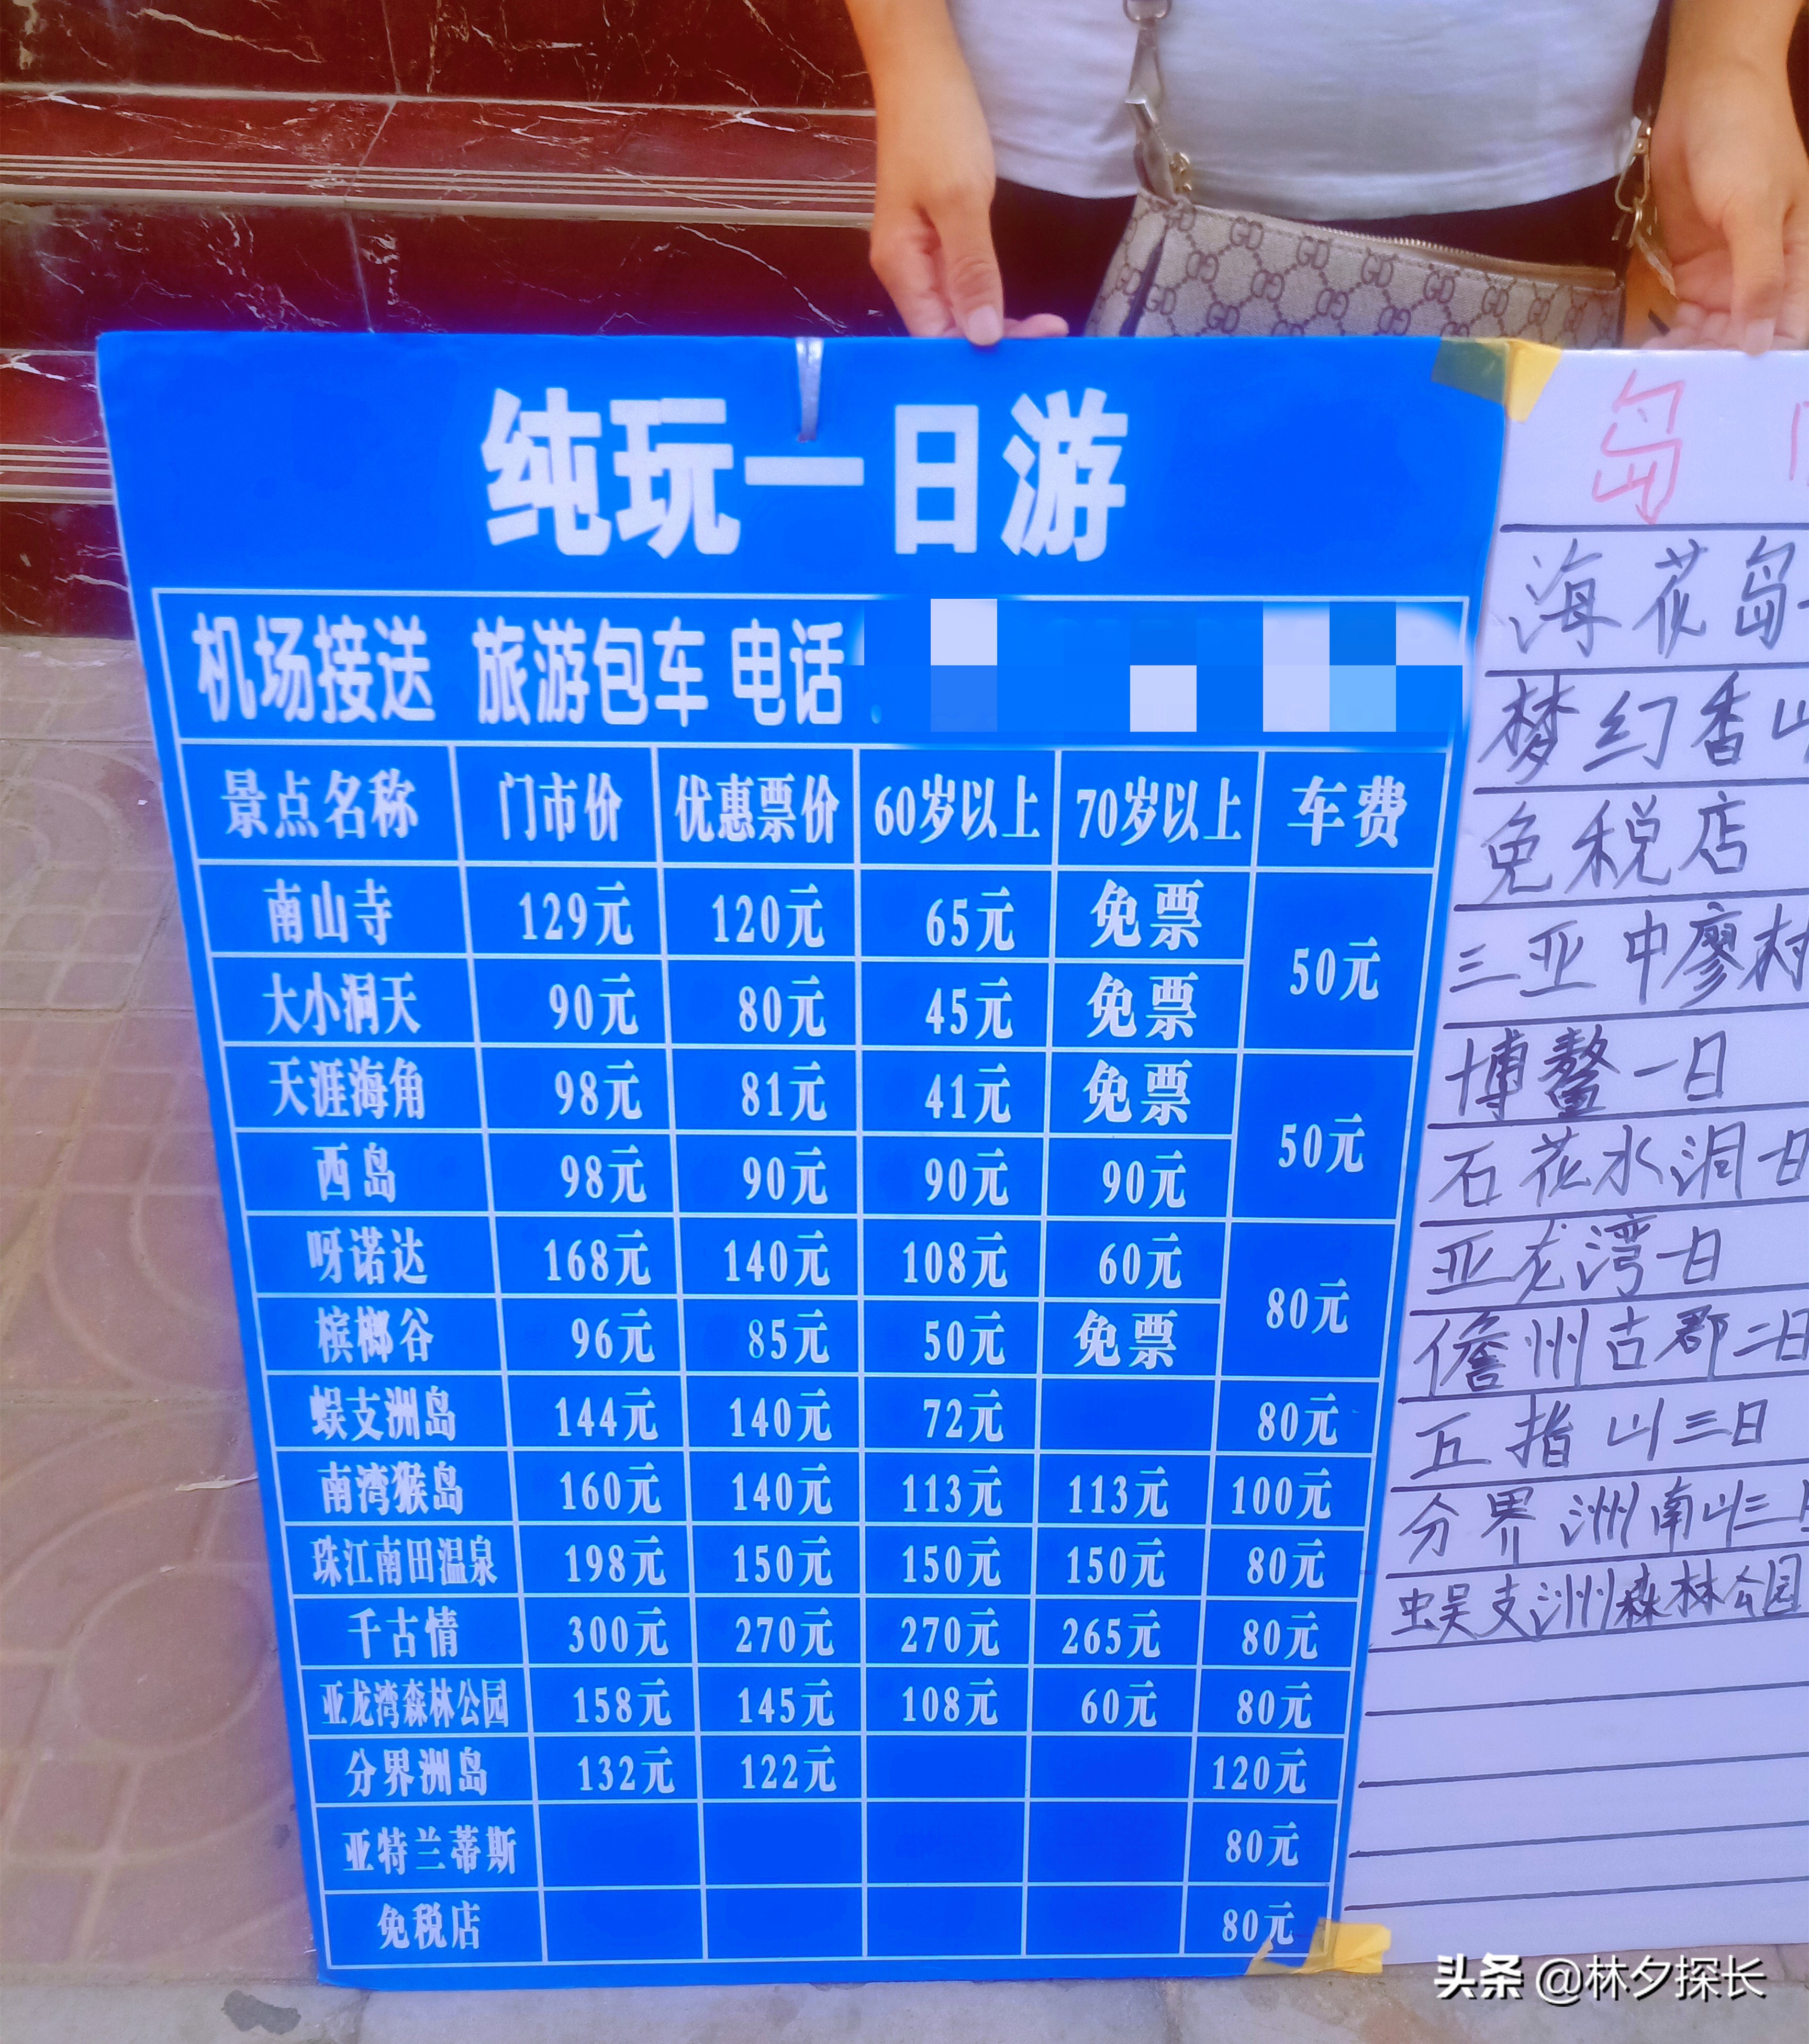 纯玩一日游
机场接送 旅游包车 电话
景点名称 门市价 优惠票价 60岁以上 70岁以上 车费
南山寺 129元 120元 65元 免票 50元
大小洞天 90元 80元 45元 免票
天涯海角 98元 81元 41元 免票 50元
西岛 98元 90元 90元 90元
呀诺达 168元 140元 108元 60元 80元
槟榔谷 96元 85元 50元 免票
蜈支洲岛 144元 140元 72元 80元
南湾猴岛 160元 140元 113元 113元 100元
珠江南田温泉 198元 150元 150元 150元 80元
千古情 300元 270元 270元 265元 80元
亚龙湾森林公园 158元 145元 108元 60元 80元
分界洲岛 132元 122元 120元
亚特兰蒂斯 80元
免税店 80元
岛
海花岛
梦幻香山
免税店
三亚中廖村
博鳌一日
石花水洞一日
亚龙湾一日
儋州古郡二日
五指山三日
分界洲南山三
蜈支洲森林公园
头条 @林夕探长